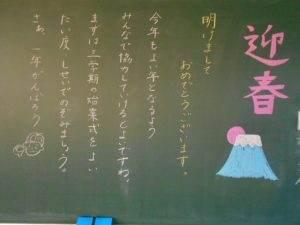 迎春
明けまして
おめでとうございます。
今年もよい年となるよう
みんなで協力していけるとよいですね。
まずは三学期の始業式をよい
たい度、しせいでのぞみましょう。
さあ、一年がんばろう